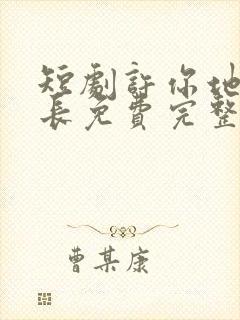 短劇許你地
長免費完整
曹某康